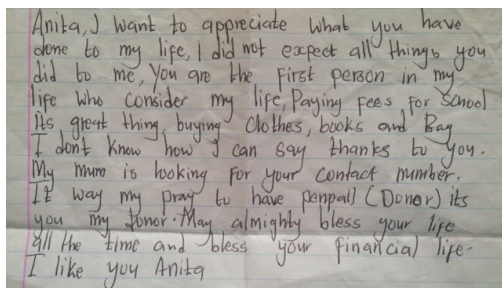 Anita, I want to appreciate what you have
done to my life, I did not expect all things you
did to me, You are the first person in my
life who consider my life, Paying Fees for School
its great thing, buying clothes, books and Bag
I dont know how I can say thanks to you.
My mum is looking For your contact number.
It way my pray to have penpall (Donor) its
you my donor. May almighty bless your life
all the time and bless your financial life-
I like you Anita